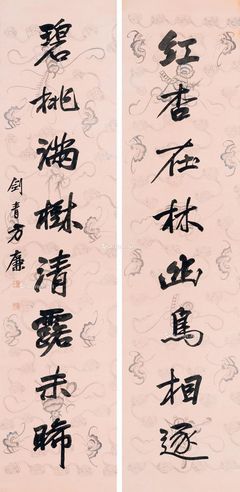 红杏在林幽鸟相逐
碧桃满樹清露未晞
剑青方廉